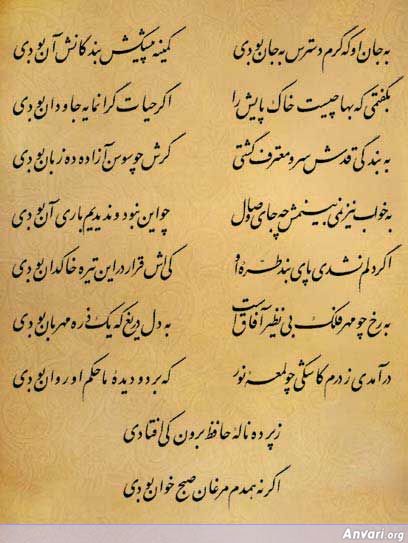 به جان او که گرم دسترس به جان بودی کمینه پیشکش بندگانش آن بودی
بگفتمی که بها چیست خاک پایش را اگر حیات گرانمایه جاودان بودی
به بندگی قدش سرو معترف گشتی گرش چو سوسن آزاده ده زبان بودی
به خواب نیز نمی بینمش چه جای وصال چو این نبود و ندیدیم باری آن بودی
اگر دلم نشدی پای بند طرهٔ او کی اش قرار در این تیره خاکدان بودی
به رخ چو مهر فلک بی نظیر آفاق است به دل دریغ که یک ذره مهربان بودی
درآمدی ز درم کاشکی چو لمعهٔ نور که بر دو دیدهٔ ما حکم او روان بودی
ز پرده نالهٔ حافظ برون کی افتادی
اگر نه همدم مرغان صبح خوان بودی
Anvari.org